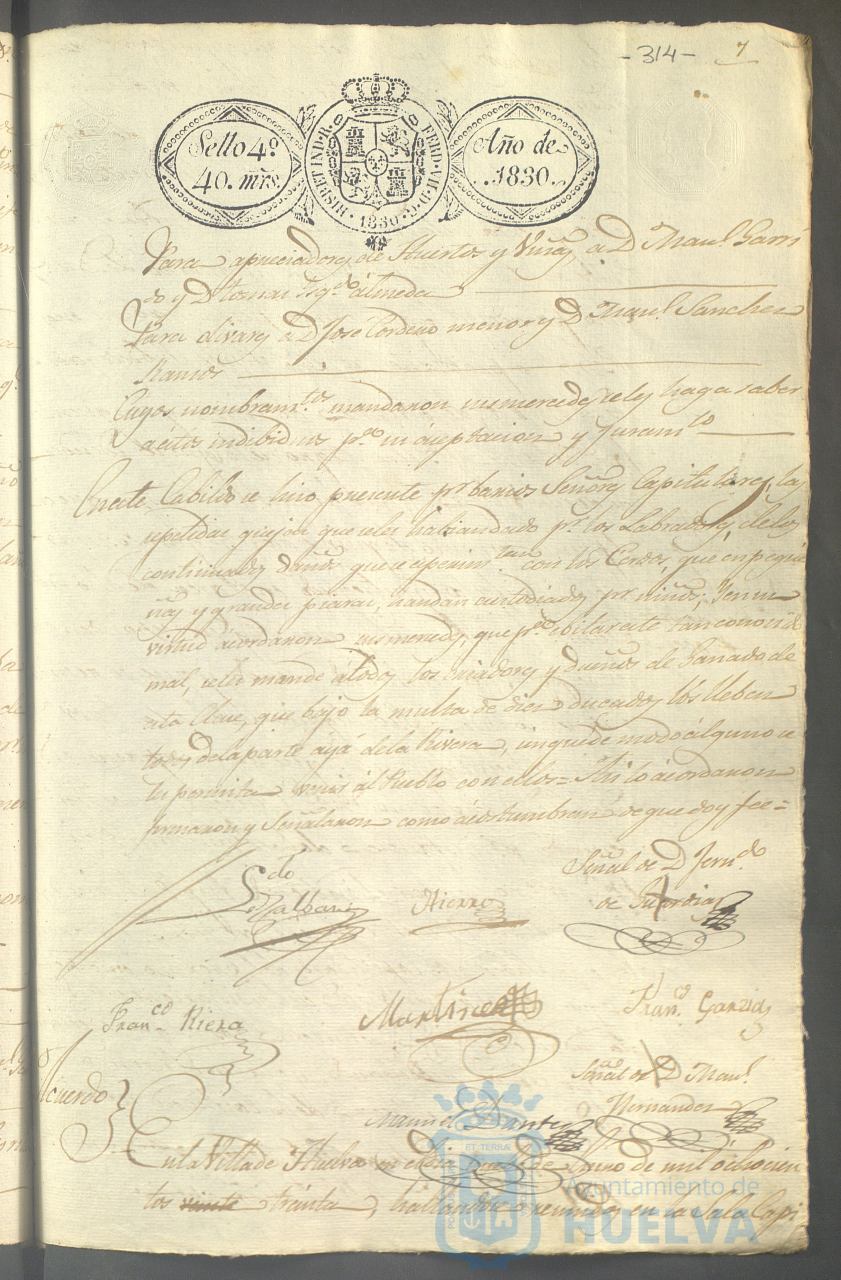 -314- 7
Sello 4º
40. mrs.
HISP. ET IND. R. FERD. VII. D. G. 1830
Año de
1830.
Para apreciadores de Huertos y Viñas, a D Manl. Garri
do y D tomas Almeda
Para olivares a D Jose Cordero menor y D Manl. Sanchez
Ramos
Cuyos nombramtos mandaron sus mercedes se les haga saber
a estos individuos pª. su aceptacion y Juramto
En este Cabildo se hizo presente pr barios Señores Capitulares, las
repetidas quejas que seles habian dado pr. los Labradores, delos
continuados daños que se esperimtan con los Cerdos, que en peque
ñas y grandes piaras, handan custodiados pr niños; Yensu
virtud acordaron sus mercedes, que pª. evitar este tan conocido
mal, seles mande a todos los criadores y dueños de Ganado de
esta Clase, que bajo la multa de diez ducados los lleben
todos dela parte ayá dela Rivera, sin que de modo alguno se
les permita venir al Pueblo con ellos = Asi lo acordaron
firmaron y Señalaron como acostumbran de que doy fee =
Señal de D Ferndo
de Guardia
Ldo
Hierro
Franco Riera
Martinez
Franco Garzia
Señal de D Manl.
Hernandez
Acuerdo
Manuel
En la Villa de Huelva en el dia de Enero de mil ochocien
tos veinte treinta, hallandose reunidos en la Sala Capi
ET TERRAE
Ayuntamiento de
HUELVA